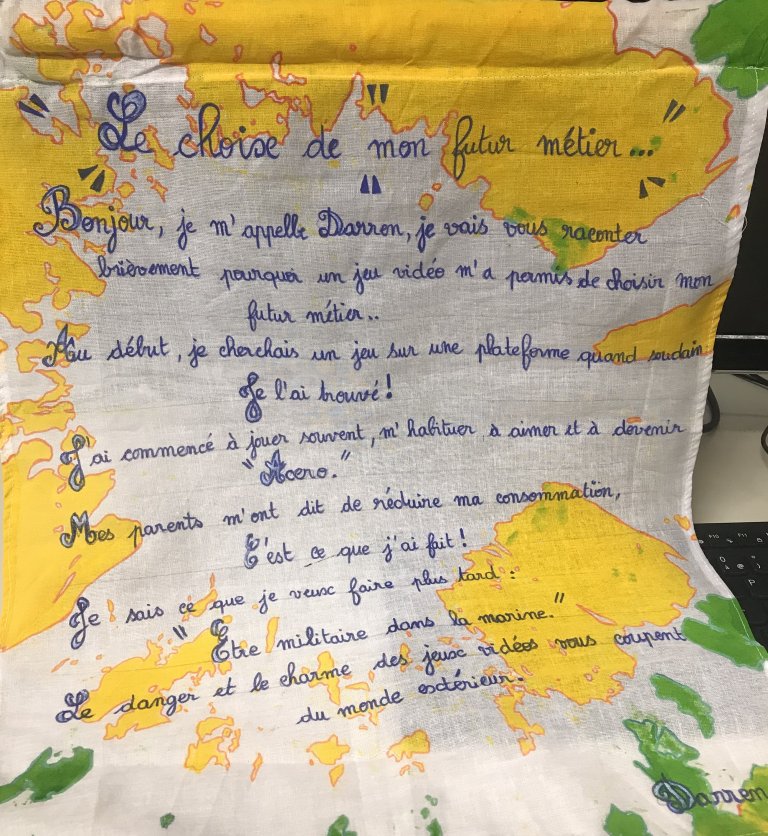 Le choix de mon futur métier...
Bonjour, je m'appelle Darren, je vais vous raconter
brièvement pourquoi un jeu vidéo m'a permis de choisir mon
futur métier..
Au début, je cherchais un jeu sur une plateforme quand soudain
Je l'ai trouvé!
J'ai commencé à jouer souvent, m'habituer à aimer et à devenir
"Accro."
Mes parents m'ont dit de réduire ma consommation,
C'est ce que j'ai fait!
Je sais ce que je veux faire plus tard :
"Etre militaire dans la marine."
Le danger et le charme des jeux vidéos vous coupent
du monde extérieur.
Darren